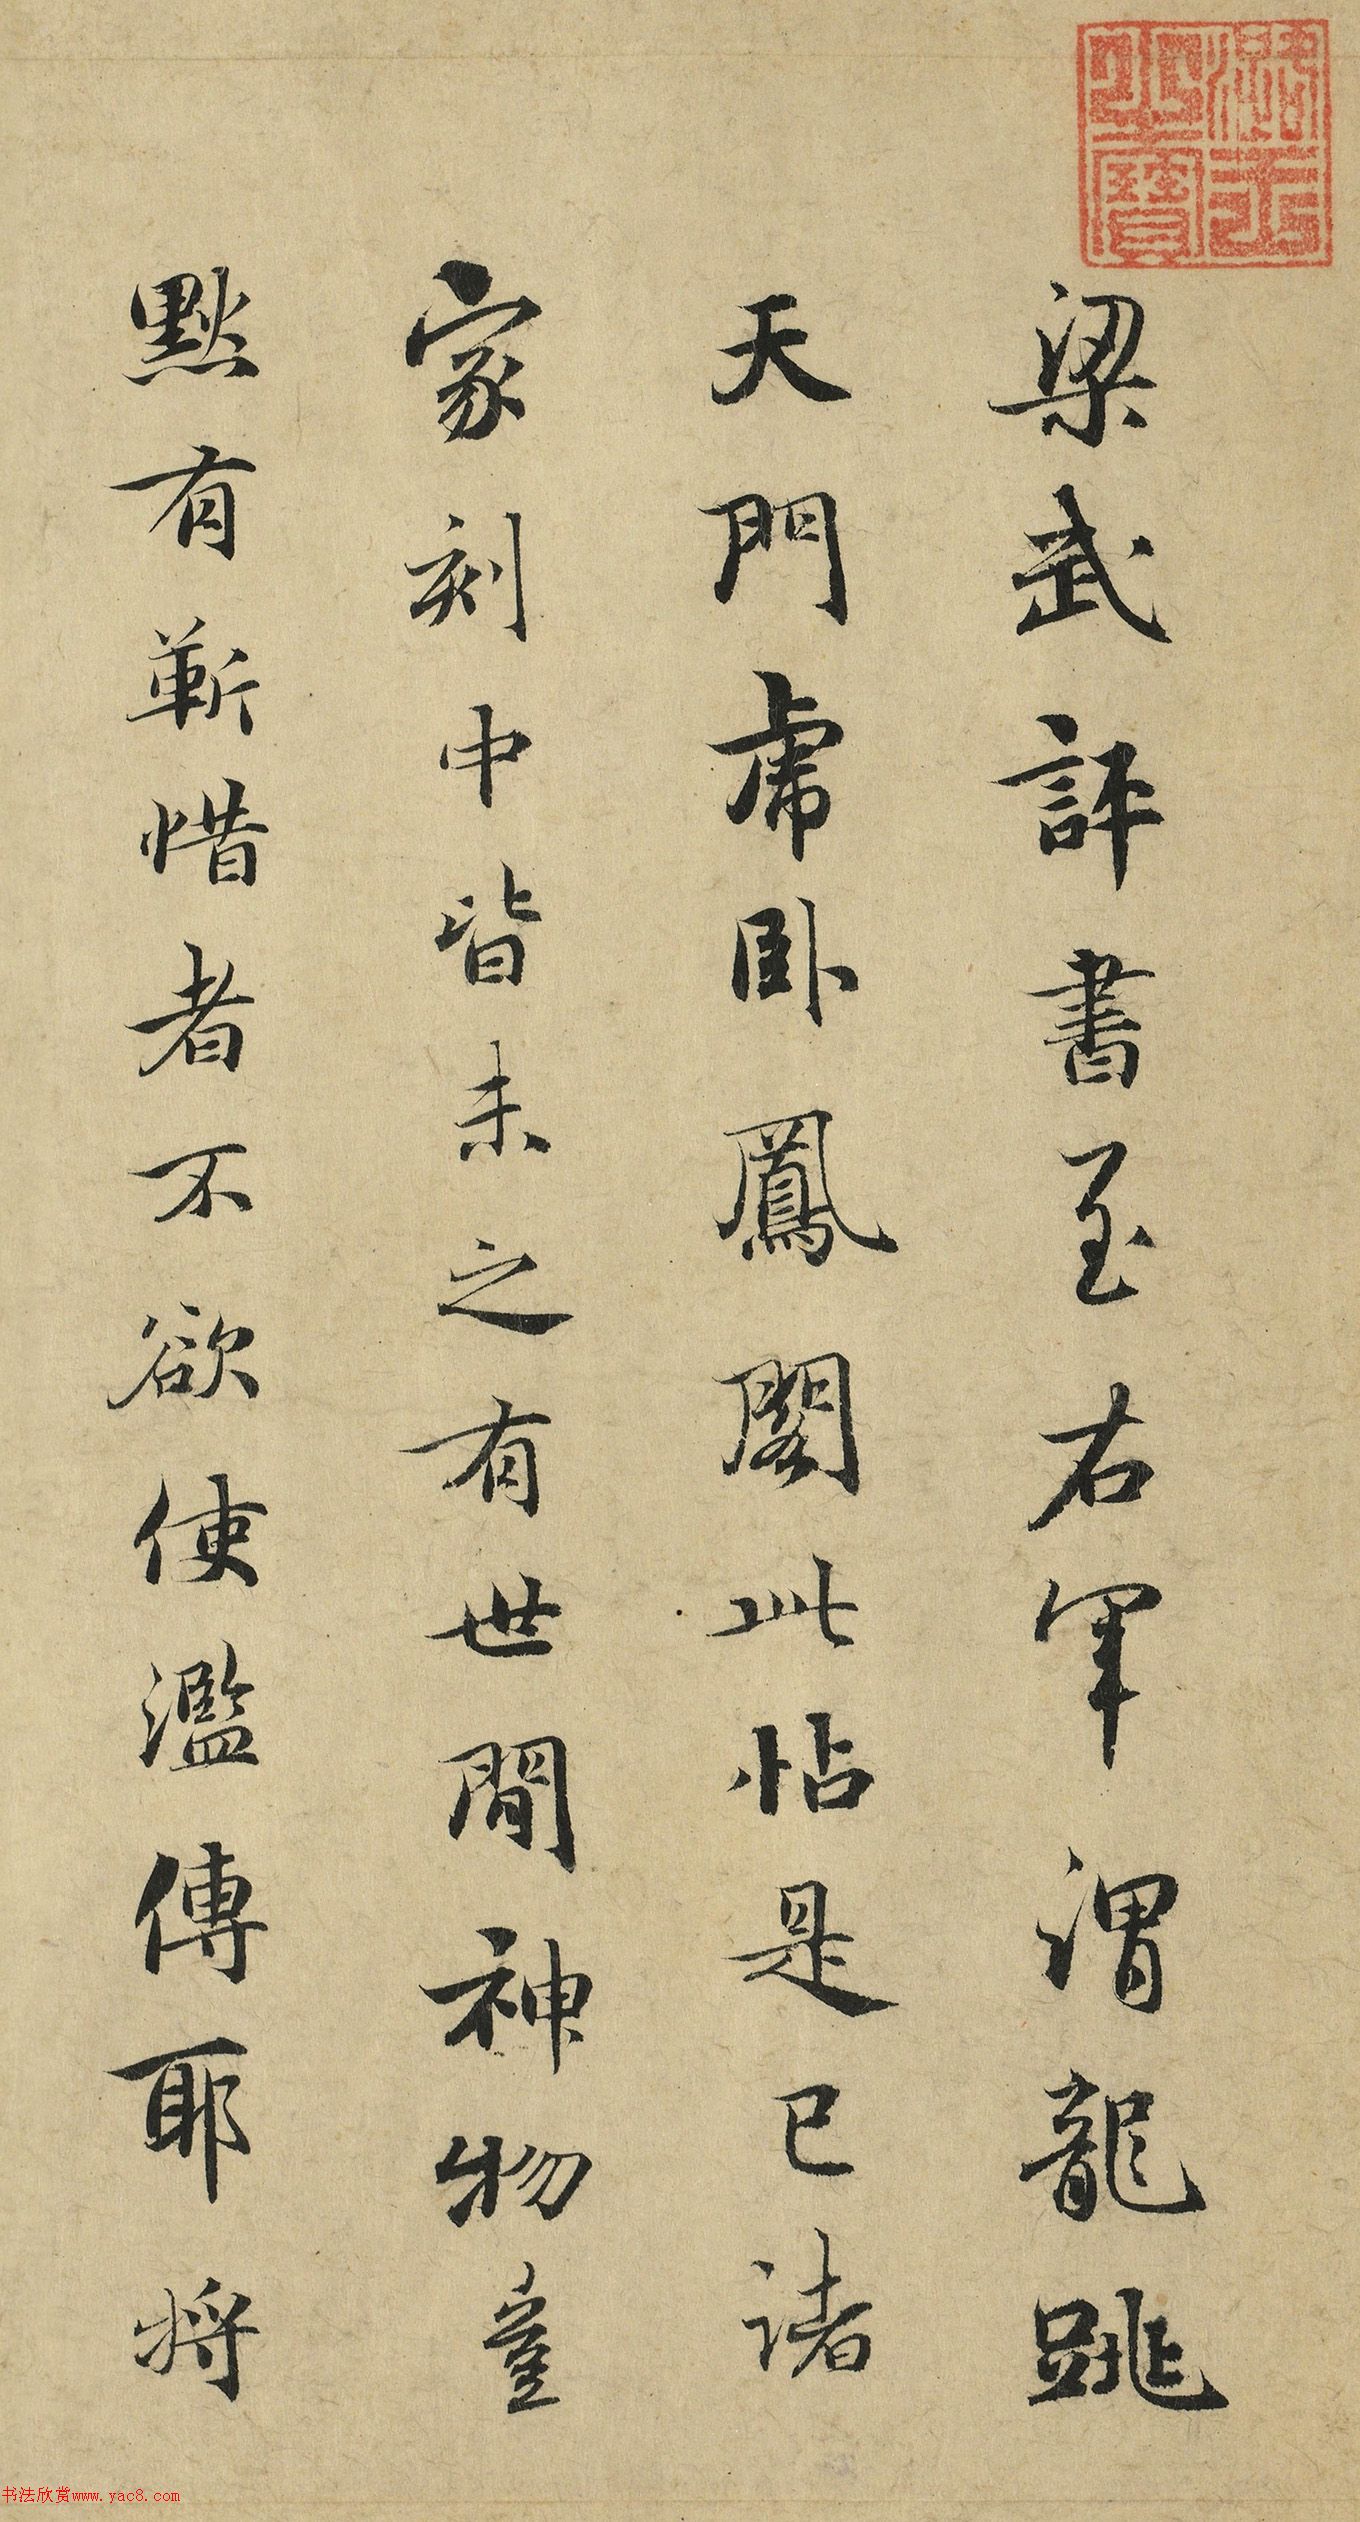 梁武評書至右軍謂龍跳
天門虎卧鳳閣此帖是已諸
家刻中皆未之有世間神物豈
黙有靳惜者不欲使濫傳耶將
潞王之寶
书法欣赏www.yac8.com